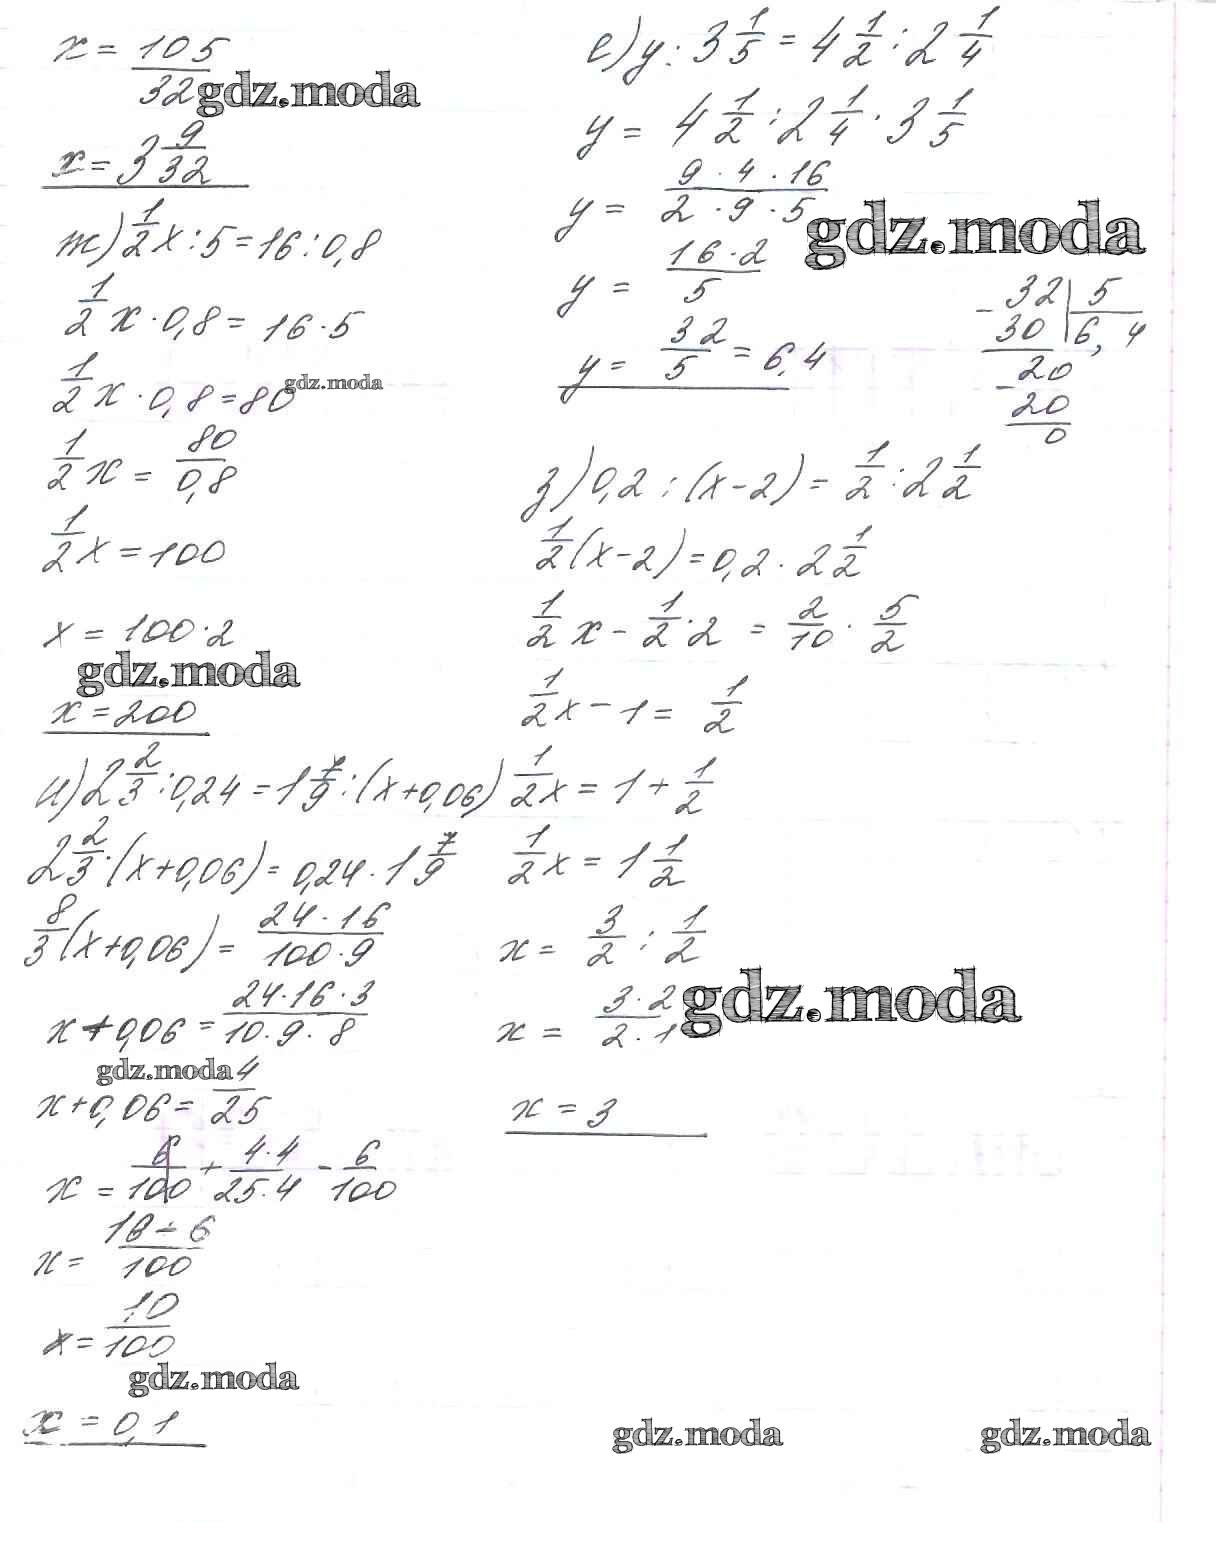 x = 105/32
gdz.moda
x = 3 9/32
ж) 1/2 x : 5 = 16 : 0,8
1/2 x · 0,8 = 16 · 5
1/2 x · 0,8 = 80
gdz.moda
1/2 x = 80/0,8
1/2 x = 100
x = 100 · 2
gdz.moda
x = 200
и) 2 2/3 : 0,24 = 1 7/9 : (x + 0,06)
2 2/3 · (x + 0,06) = 0,24 · 1 7/9
8/3 (x + 0,06) = 24 · 16/100 · 9
x + 0,06 = 24 · 16 · 3/10 · 9 · 8
gdz.moda
x + 0,06 = 4/25
x = 6/100 + 4 · 4/25 · 4 - 6/100
x = 16 - 6/100
x = 10/100
gdz.moda
x = 0,1
е) y : 3 1/5 = 4 1/2 : 2 1/4
y = 4 1/2 : 2 1/4 · 3 1/5
y = 9 · 4 · 16/2 · 9 · 5
gdz.moda
y = 16 · 2/5
y = 32/5 = 6,4
- 32 | 5
30 | 6,4
- 20
20
0
з) 0,2 : (x - 2) = 1/2 : 2 1/2
1/2 (x - 2) = 0,2 · 2 1/2
1/2 x - 1/2 · 2 = 2/10 · 5/2
1/2 x - 1 = 1/2
1/2 x = 1 + 1/2
1/2 x = 1 1/2
x = 3/2 : 1/2
x = 3 · 2/2 · 1
gdz.moda
x = 3
gdz.moda
gdz.moda